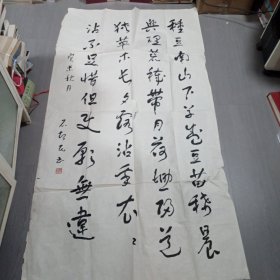 種豆南山下草盛豆苗稀晨
興理荒穢帶月荷鋤歸道
狹草木長夕露沾我衣〻
沾不足惜但使願無違
癸未秋月